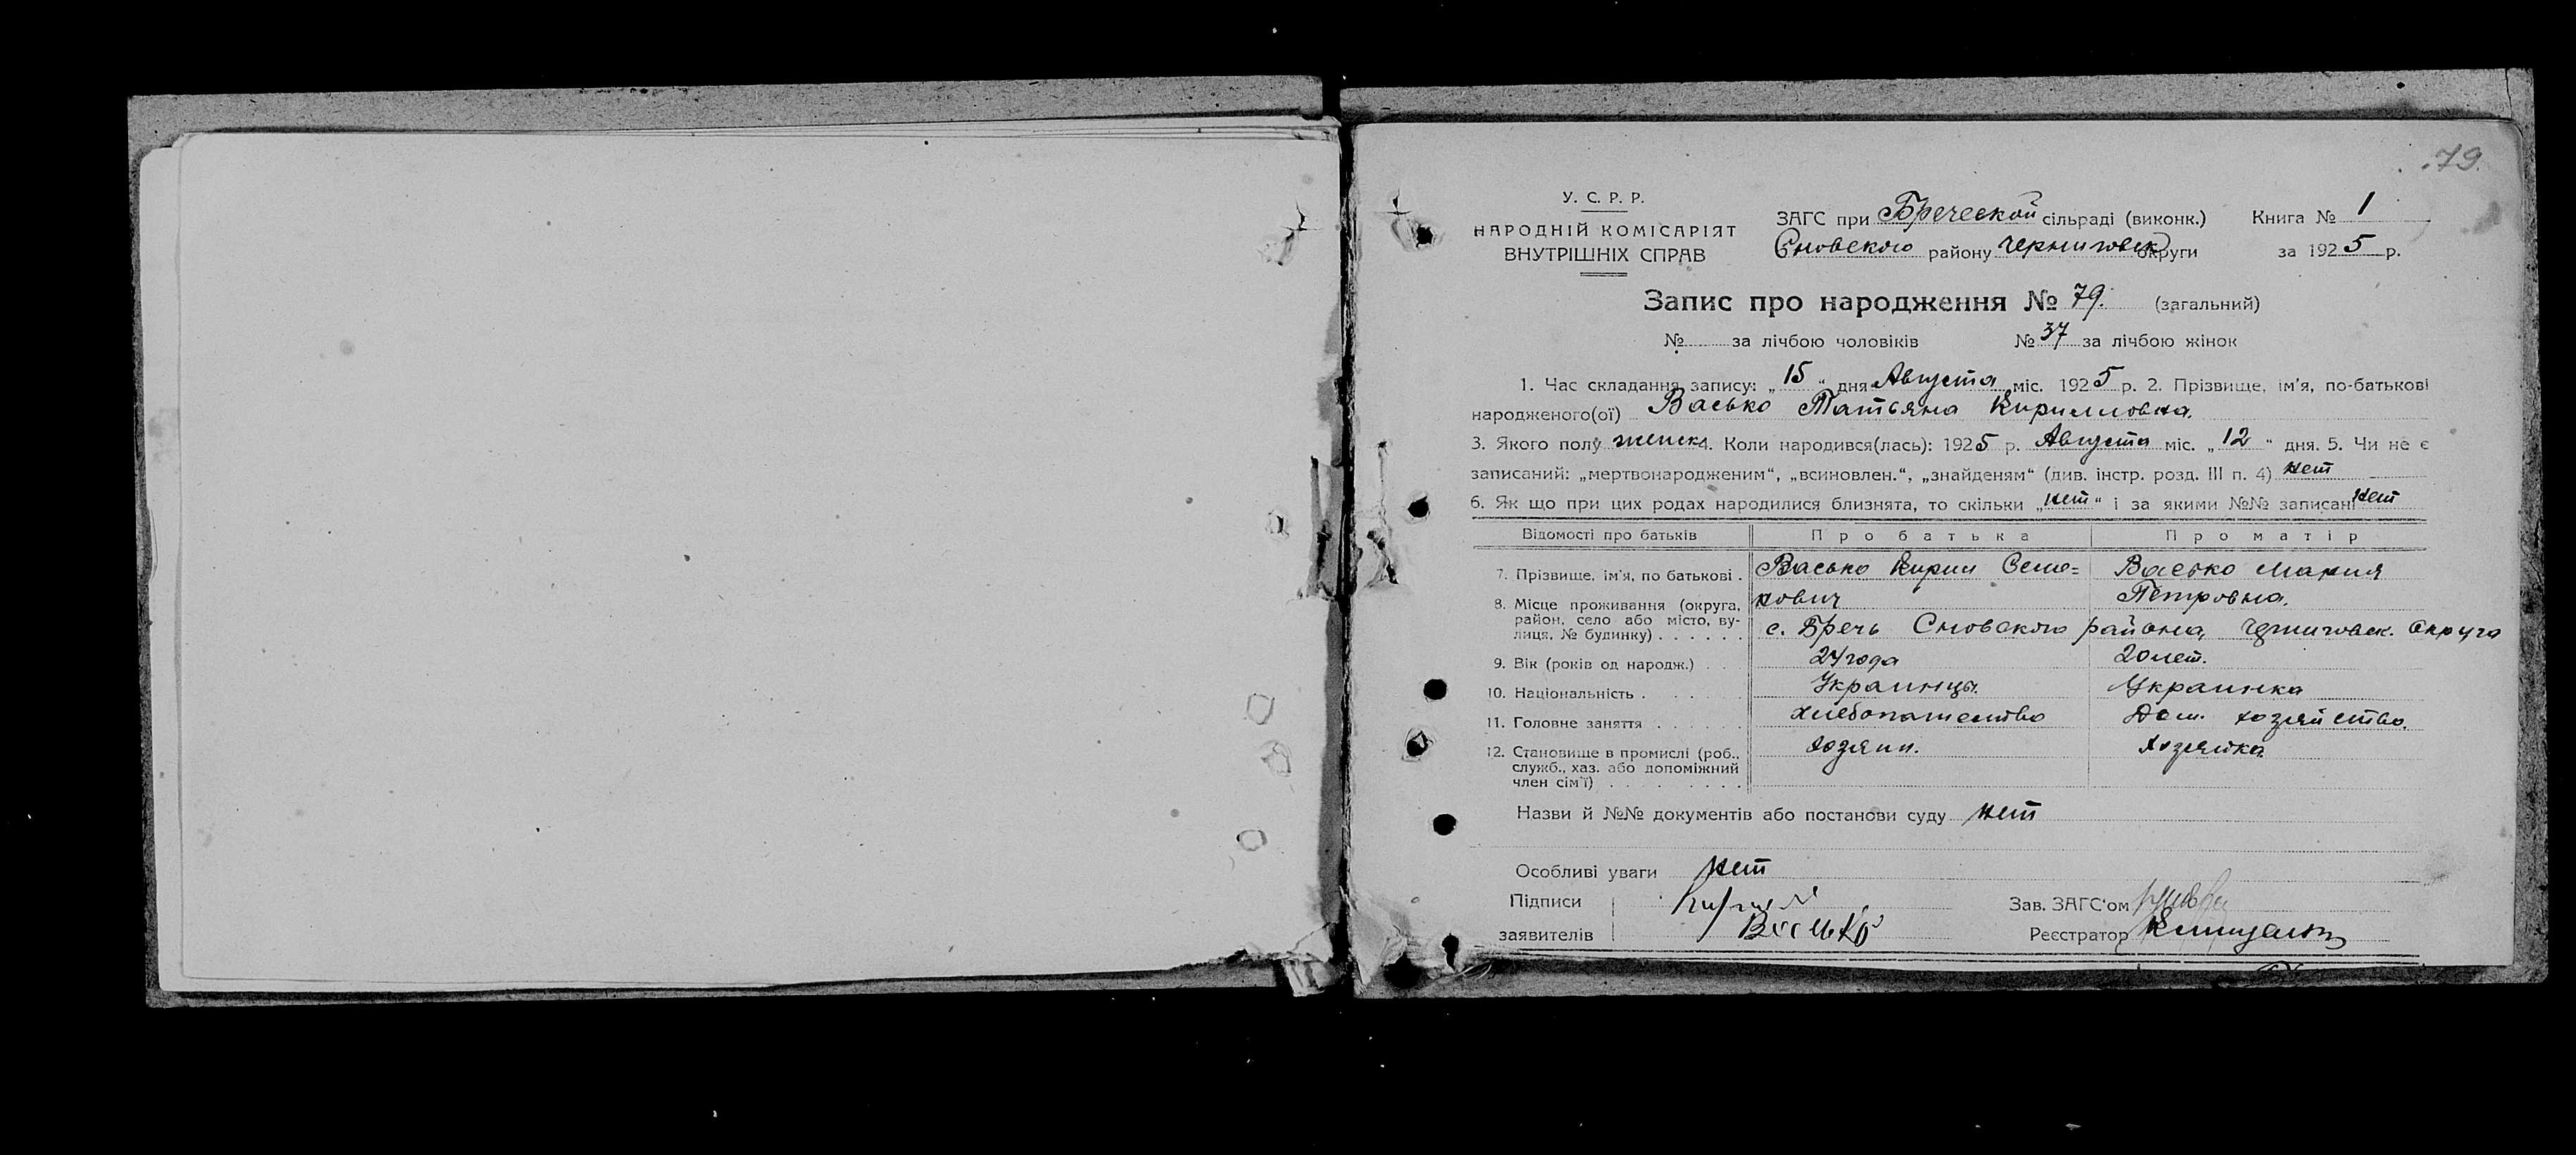 79.
У. С. Р. Р.
НАРОДНІЙ КОМІСАРІЯТ
ВНУТРІШНІХ СПРАВ
ЗАГС при Бреческой сільраді (виконк.) Книга № 1
Сновского району Черниговск округи за 1925 р.
Запис про народження № 79. (загальний)
№ за лічбою чоловіків № 37 за лічбою жінок
1. Час складання запису: „15“ дня Августа міс. 1925 р. 2. Прізвище, ім'я, по-батькові
народженого(ої) Васько Татьяна Кирилловна.
3. Якого полу женск 4. Коли народився(лась): 1925 р. Августа міс. „12“ дня. 5. Чи не є
записаний: „мертвонародженим“, „всиновлен.“, „знайденям“ (див. інстр. розд. III п. 4) нет
6. Як що при цих родах народилися близнята, то скільки „нет“ і за якими №№ записані нет
Відомості про батьків Про батька Про матір
7. Прізвище, ім'я, по батькові . Васько Кирил Семе= Васько Мария
нович Петровна.
8. Місце проживання (округа,
район, село або місто, ву-
лиця, № будинку) . . . . . . с. Бречь Сновского района, Черниговск. Округа
9. Вік (років од народж.) . . 24 года 20 лет.
10. Національність . . . . . . Украинцы. Украинка
11. Головне заняття . . . . . . хлебопашество Дом. хозяйство.
12. Становище в промислі (роб.,
служб., хаз. або допоміжний
член сім'ї) . . . . . . . . хозяин. хозяйка
Назви й №№ документів або постанови суду нет
Особливі уваги нет
Підписи Зав. ЗАГС'ом
заявителів Васько Реєстратор